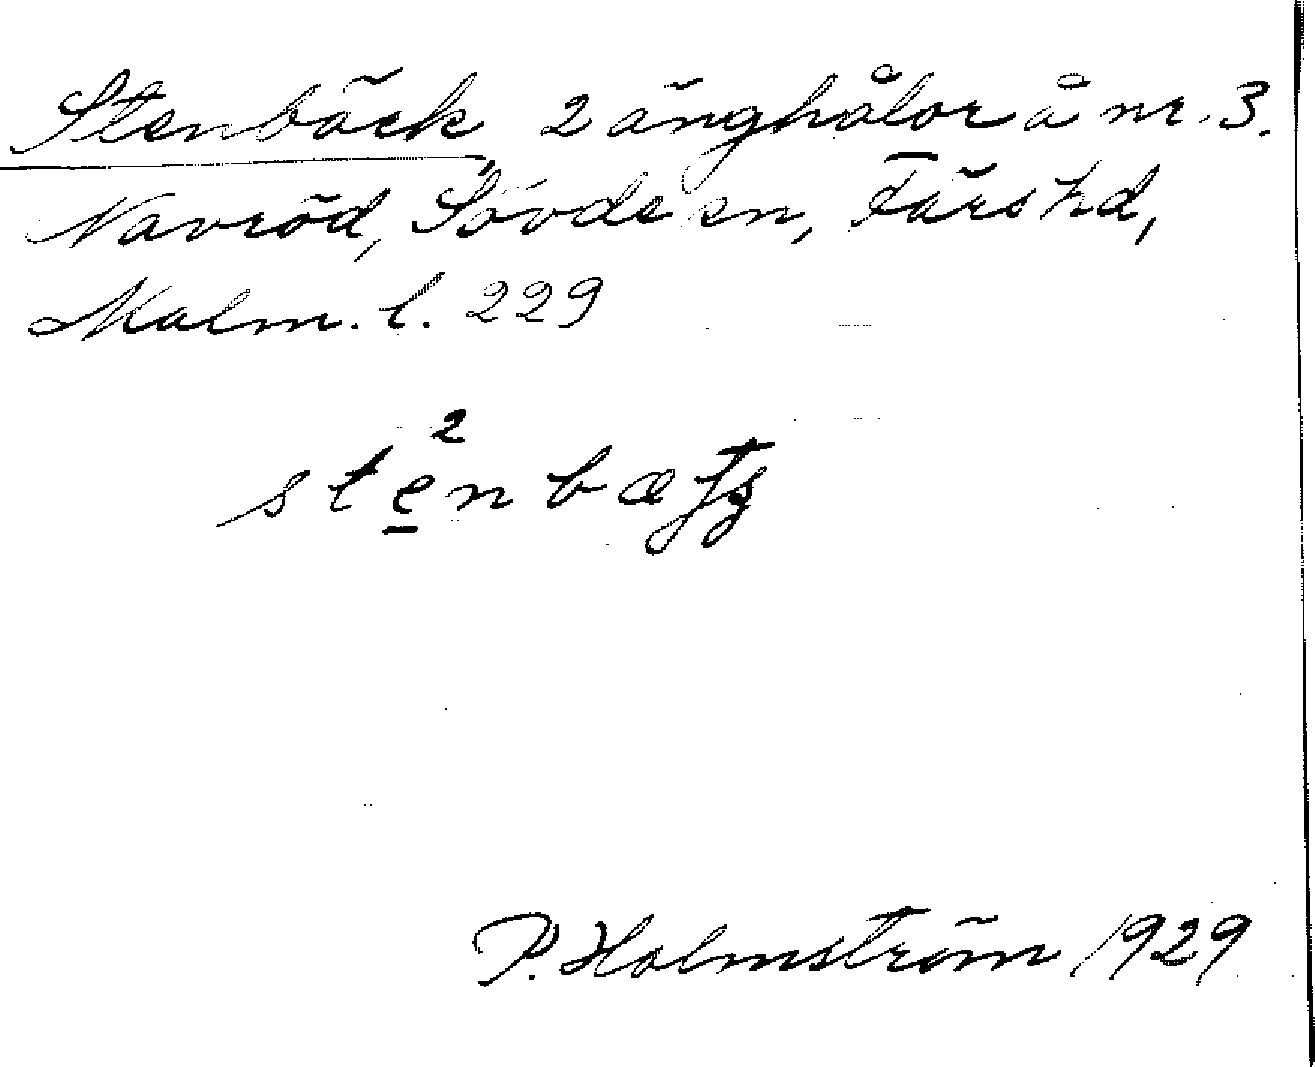 Stenbäck, 2 änghålor å nr. 3.
Navröd, Sövde sn, Färs hd,
Malm. l. 229
2
P. Holmström 1929